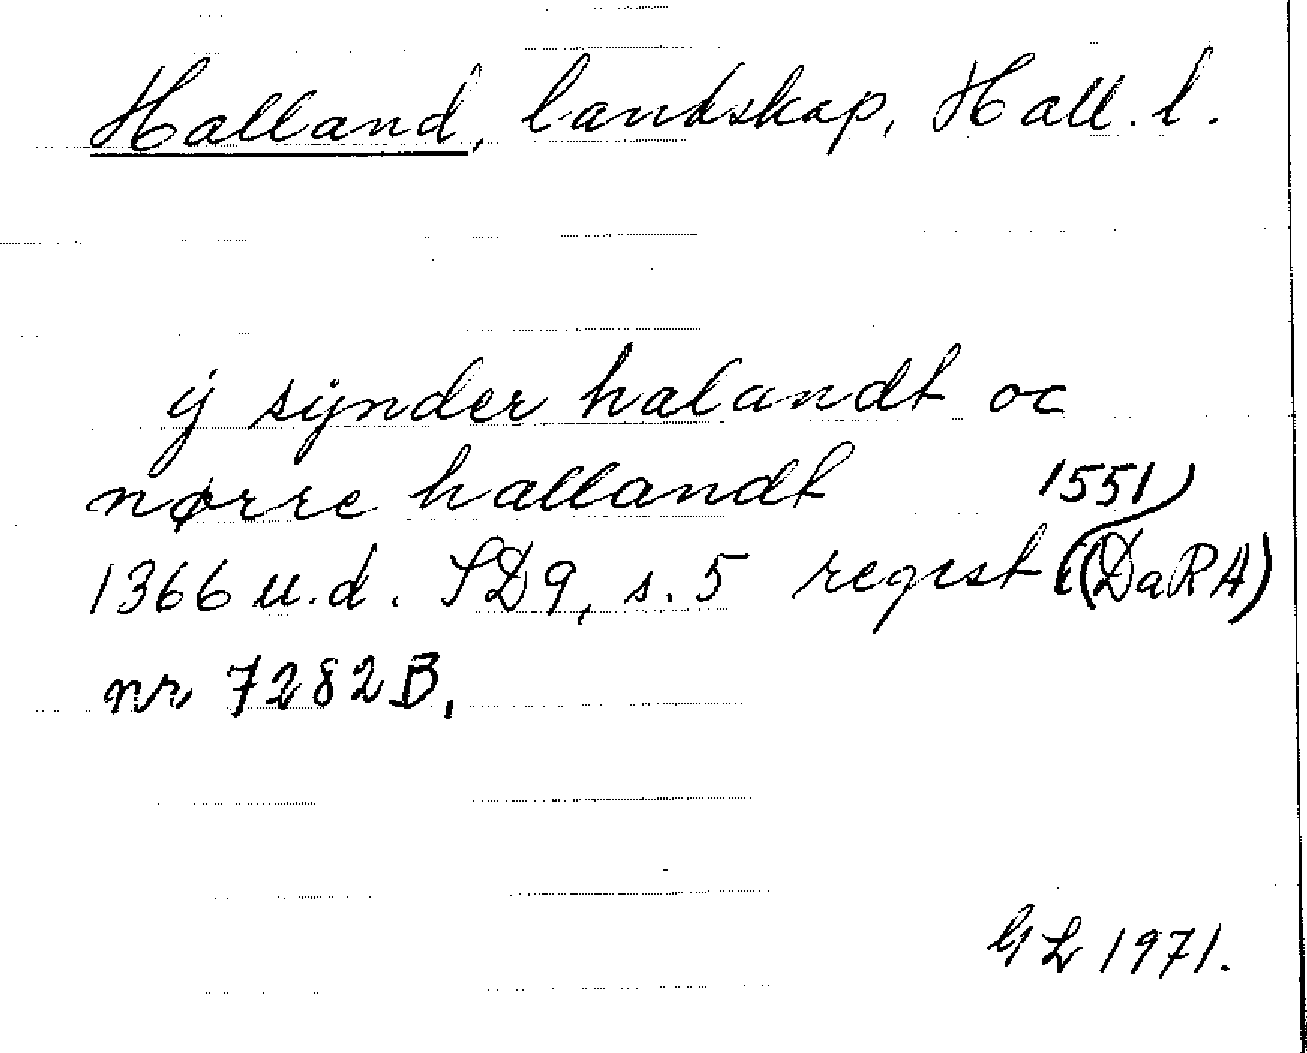 Halland, landskap, Hall. l.
ÿ sÿnder halandt oc
nørre hallandt
1551
1366 u.d. SD9, s. 5 regest (DaRA)
nr 7282B.
GL 1971.